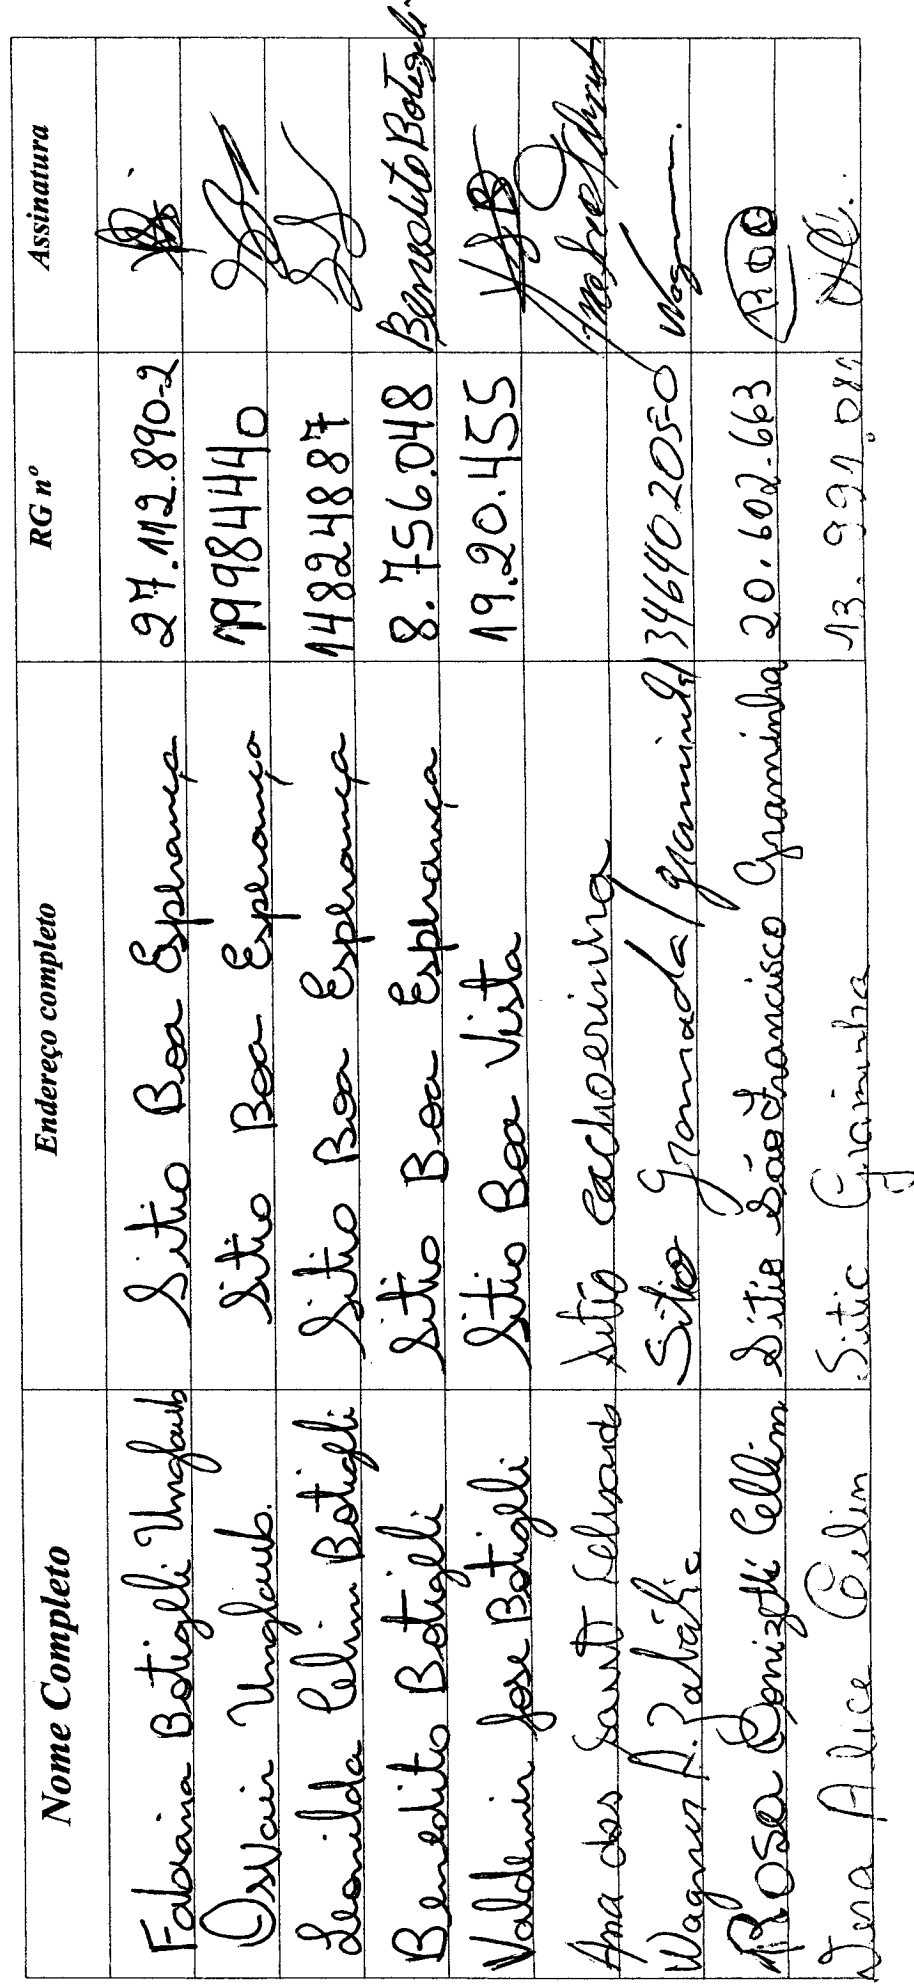 Nome Completo Endereço completo RG nº Assinatura
Fabiana Botigelli Unglaub Sitio Boa Esperança 27.112.890-2
Osvair Unglaub. Sitio Boa Esperança 19984440
Leonilda Celim Botigelli Sitio Boa Esperança 14824887
Benedito Botigelli Sitio Boa Esperança 8.756.048 Benedito Botigeli
Valdemir Jose Botigelli Sitio Boa Vista 19.20.455 VJB
Ana dos Sitio cachoerinha
Wagner A. Sitio Gramada/graminha 346402050 Wagner.
Rosa Donizetti Cellim Sitio São Francisco Graminha 20.602.663
Vera Alice Celim Sitio Graminha 13.991.081